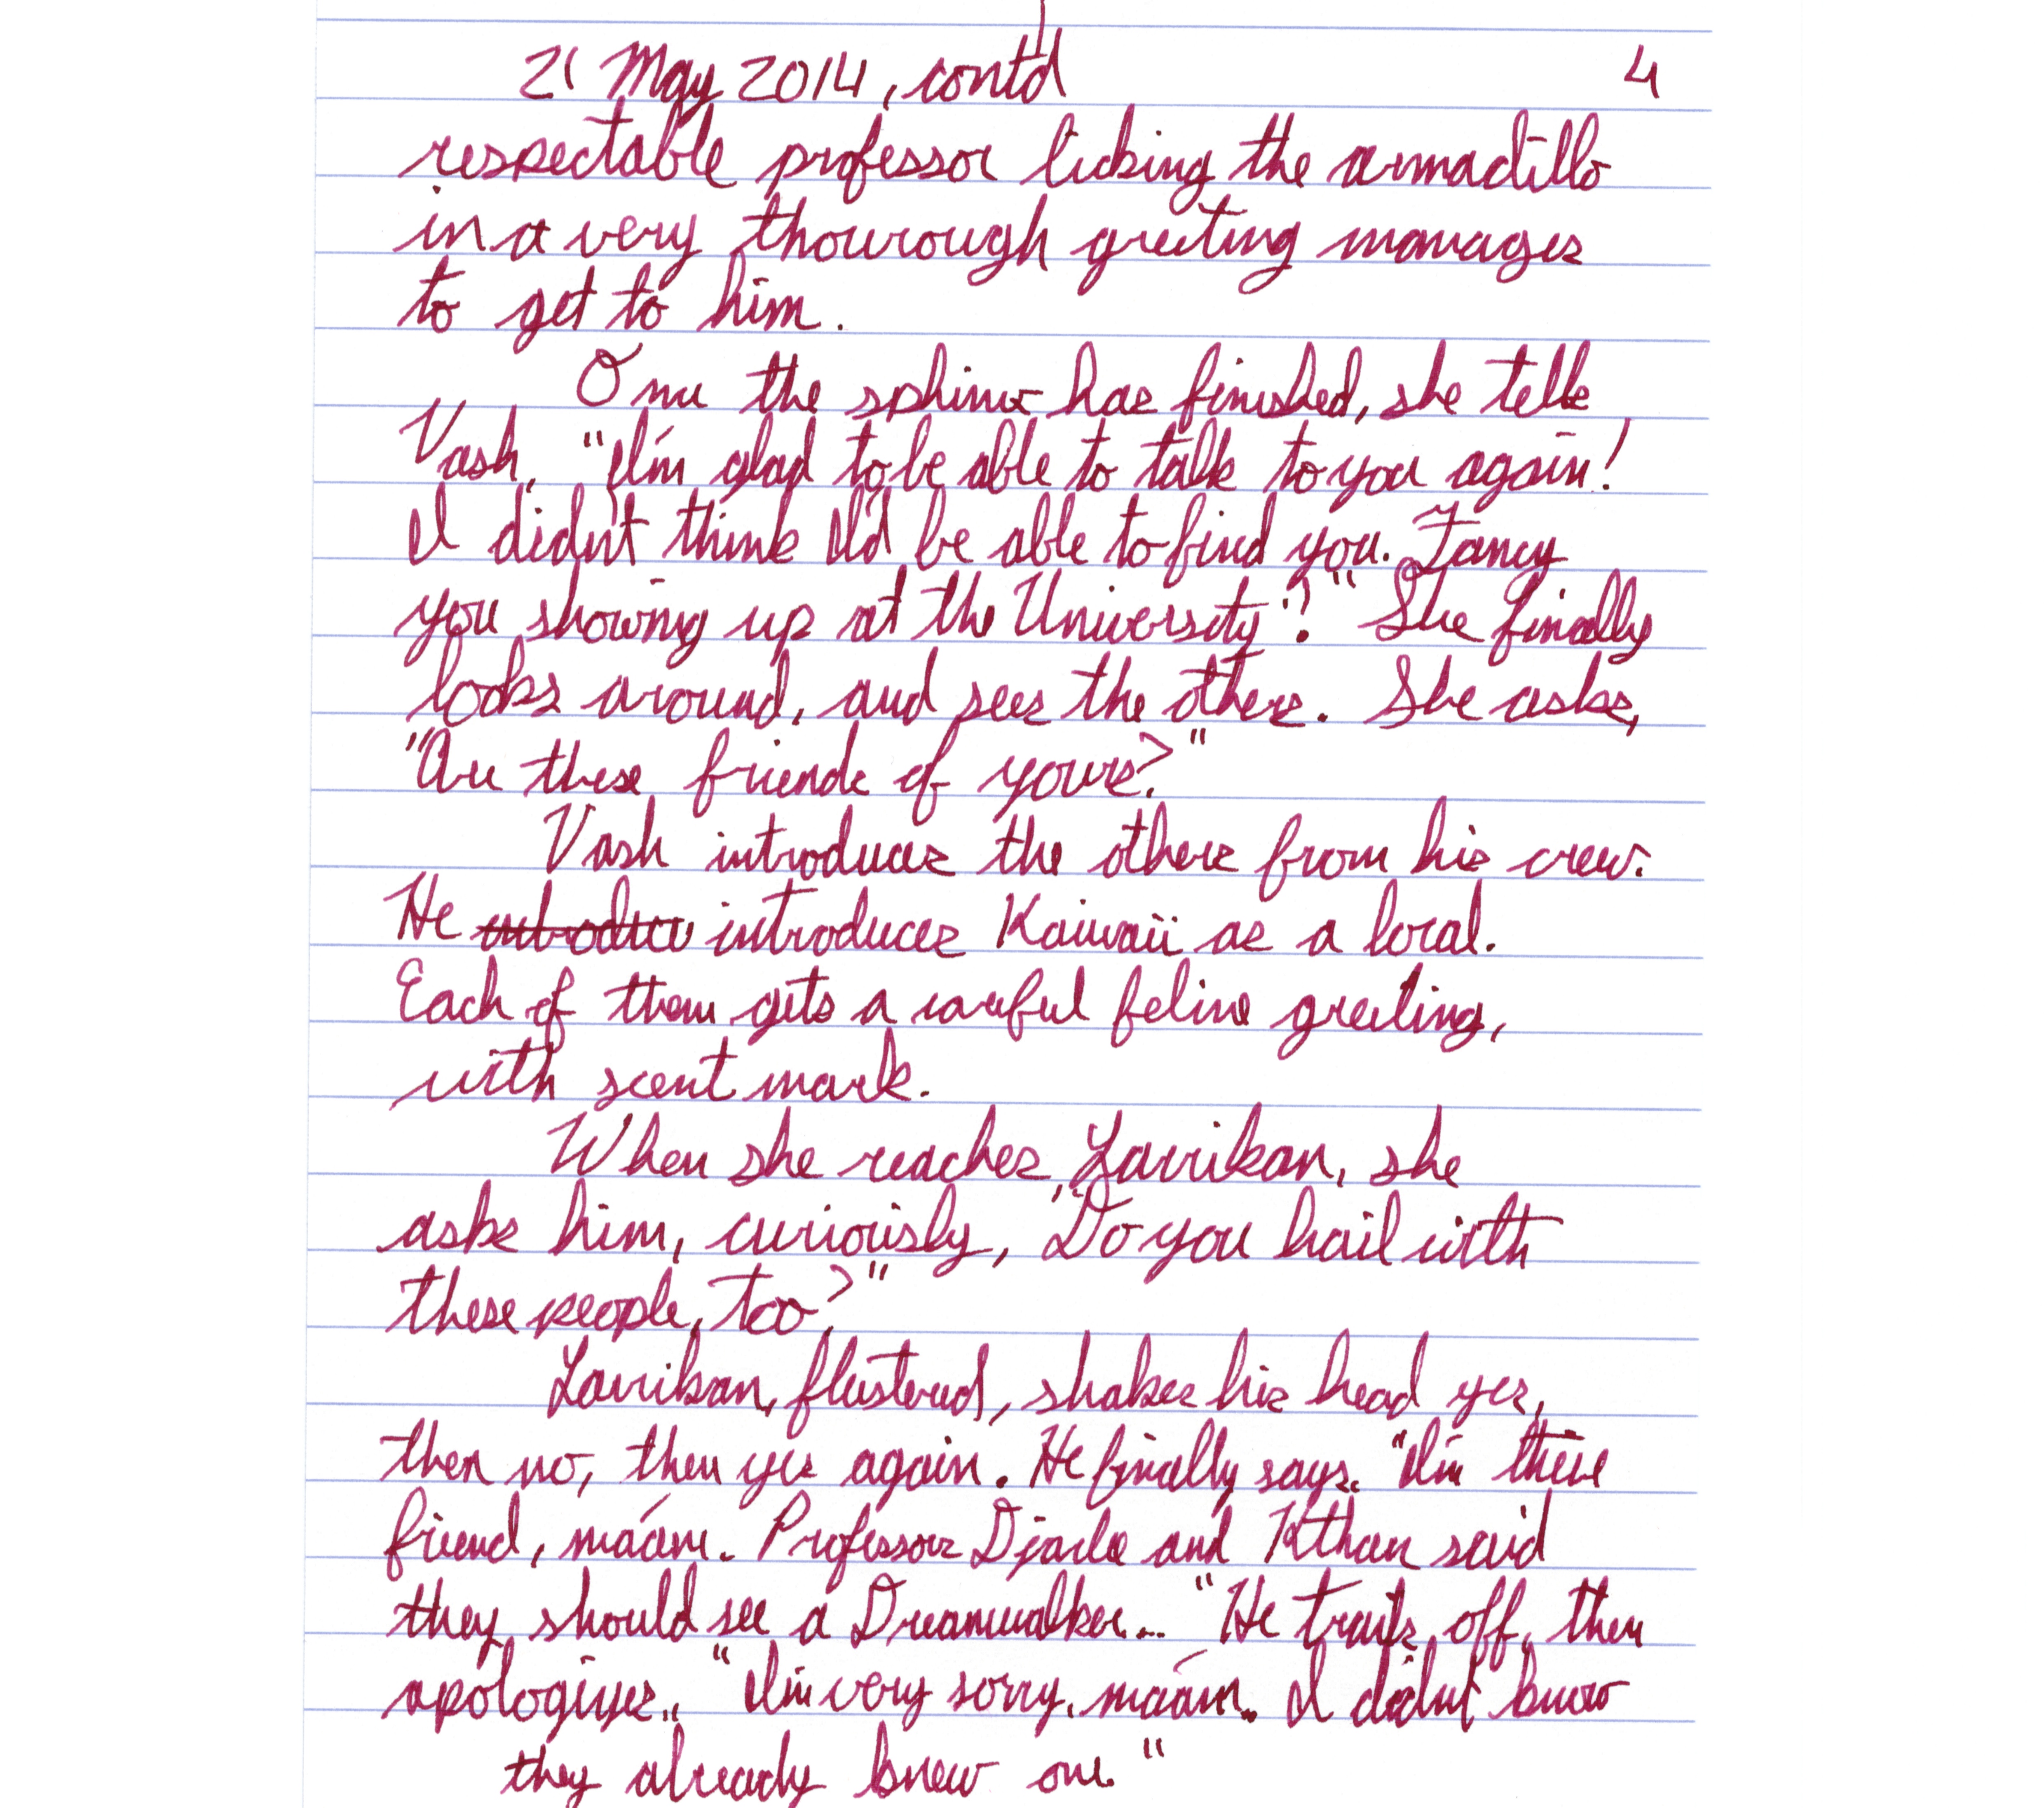 21 May 2014, contd 4
respectable professor licking the armadillo
in a very thourough greeting manages
to get to him.
Once the sphinx has finished, she tells
Vash, "I'm glad to be able to talk to you again!
I didn't think I'd be able to find you. Fancy
you showing up at the University!?" She finally
looks around, and sees the others. She asks,
"Are these friends of yours?"
Vash introduces the others from his crew.
He introduces Kaiwaii as a local.
Each of them gets a careful feline greeting,
with scent mark.
When she reaches Larrikan, she
asks him, curiously, "Do you hail with
these people, too?"
Larrikan, flustered, shakes his head yes,
then no, then yes again. He finally says, "I'm their
friend, ma'am. Professors Djarla and Kthan said
they should see a Dreamwalker..." He trails off, then
apologizes, "I'm very sorry, ma'am. I didn't know
they already knew one."